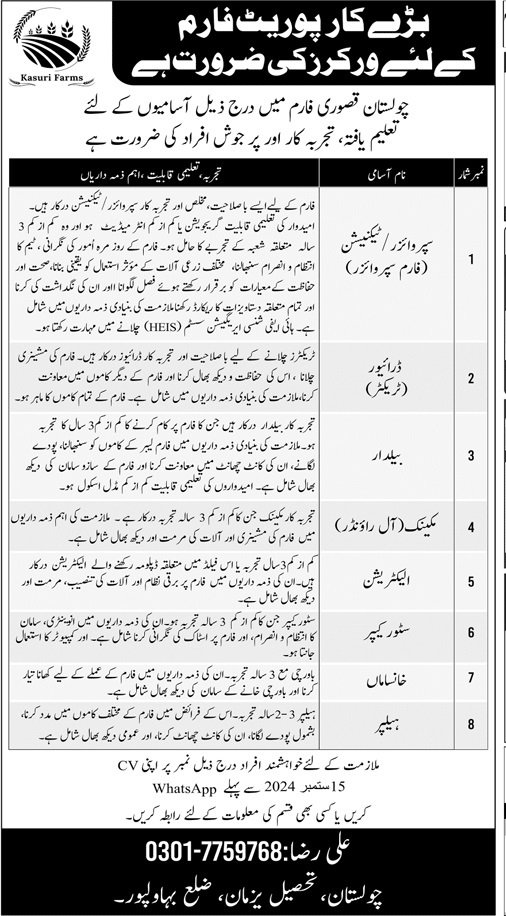 Kasuri Farms
بڑے کارپوریٹ فارم
کے لئے ورکرز کی ضرورت ہے
چولستان قصوری فارم میں درج ذیل آسامیوں کے لئے
تعلیم یافتہ، تجربہ کار اور پرجوش افراد کی ضرورت ہے
نمبر شمار
نام آسامی
تجربہ، تعلیمی قابلیت، اہم ذمہ داریاں
1
سپروائزر/ٹیکنیشن
(فارم سپروائزر)
فارم کے لیے ایسے باصلاحیت، مخلص اور تجربہ کار سپروائزر/ٹیکنیشن درکار ہیں۔
امیدوار کی تعلیمی قابلیت گریجویشن یا کم از کم انٹرمیڈیٹ ہو اور وہ کم از کم 3
سالہ متعلقہ شعبہ کے تجربے کا حامل ہو۔ فارم کے روز مرہ اُمور کی نگرانی، ٹیم کا
انتظام و انصرام سنبھالنا، مختلف زرعی آلات کے مؤثر استعمال کو یقینی بنانا، صحت اور
حفاظت کے معیارات کو برقرار رکھتے ہوئے فصل لگوانا اور ان کی نگہداشت کی کرنا
اور تمام متعلقہ دستاویزات کا ریکارڈ رکھنا ملازمت کی بنیادی ذمہ داریوں میں شامل
ہے۔ ہائی ایفی شنسی ایریگیشن سسٹم (HEIS) چلانے میں مہارت رکھتا ہو۔
2
ڈرائیور
(ٹریکٹر)
ٹریکٹرز چلانے کے لیے باصلاحیت اور تجربہ کار ڈرائیورز درکار ہیں۔ فارم کی مشینری
چلانا، اس کی حفاظت و دیکھ بھال کرنا اور فارم کے دیگر کاموں میں معاونت
کرنا، ملازمت کی بنیادی ذمہ داریوں میں شامل ہے۔ فارم کے تمام کاموں کا ماہر ہو۔
3
بیلدار
تجربہ کار بیلدار درکار ہیں جن کا فارم پر کام کرنے کا کم از کم 3 سال کا تجربہ
ہو۔ ملازمت کی بنیادی ذمہ داریوں میں فارم لیبر کے کاموں کو سنبھالنا، پودے
لگانے، ان کی کانٹ چھانٹ میں معاونت کرنا اور فارم کے سازو سامان کی دیکھ
بھال شامل ہے۔ امیدواروں کی تعلیمی قابلیت کم از کم مڈل اسکول ہو۔
4
مکینک (آل راؤنڈر)
تجربہ کار مکینک جن کا کم از کم 3 سالہ تجربہ درکار ہے۔ ملازمت کی اہم ذمہ داریوں
میں فارم کی مشینری اور آلات کی مرمت اور دیکھ بھال شامل ہے۔
5
الیکٹریشن
کم از کم 3 سال تجربہ یا اس فیلڈ میں متعلقہ ڈپلومہ رکھنے والے الیکٹریشن درکار
ہیں۔ ان کی ذمہ داریوں میں فارم پر برقی نظام اور آلات کی تنصیب، مرمت اور
دیکھ بھال شامل ہے۔
6
سٹور کیپر
سٹور کیپر جن کا کم از کم 3 سالہ تجربہ ہو۔ ان کی ذمہ داریوں میں انوینٹری، سامان
کا انتظام و انصرام، اور فارم پر اسٹاک کی نگرانی کرنا شامل ہے۔ اور کمپیوٹر کا استعمال
جانتا ہو۔
7
خانساماں
باورچی مع 3 سالہ تجربہ۔ ان کی ذمہ داریوں میں فارم کے عملے کے لیے کھانا تیار
کرنا اور باورچی خانے کے سامان کی دیکھ بھال شامل ہے۔
8
ہیلپر
ہیلپر 3-2 سالہ تجربہ۔ اس کے فرائض میں فارم کے مختلف کاموں میں مدد کرنا،
بشمول پودے لگانا، ان کی کانٹ چھانٹ کرنا، اور عمومی دیکھ بھال شامل ہے۔
ملازمت کے لئے خواہشمند افراد درج ذیل نمبر پر اپنی CV
15 ستمبر 2024 سے پہلے WhatsApp
کریں یا کسی بھی قسم کی معلومات کے لئے رابطہ کریں۔
علی رضا: 0301-7759768
چولستان، تحصیل یزمان، ضلع بہاولپور۔